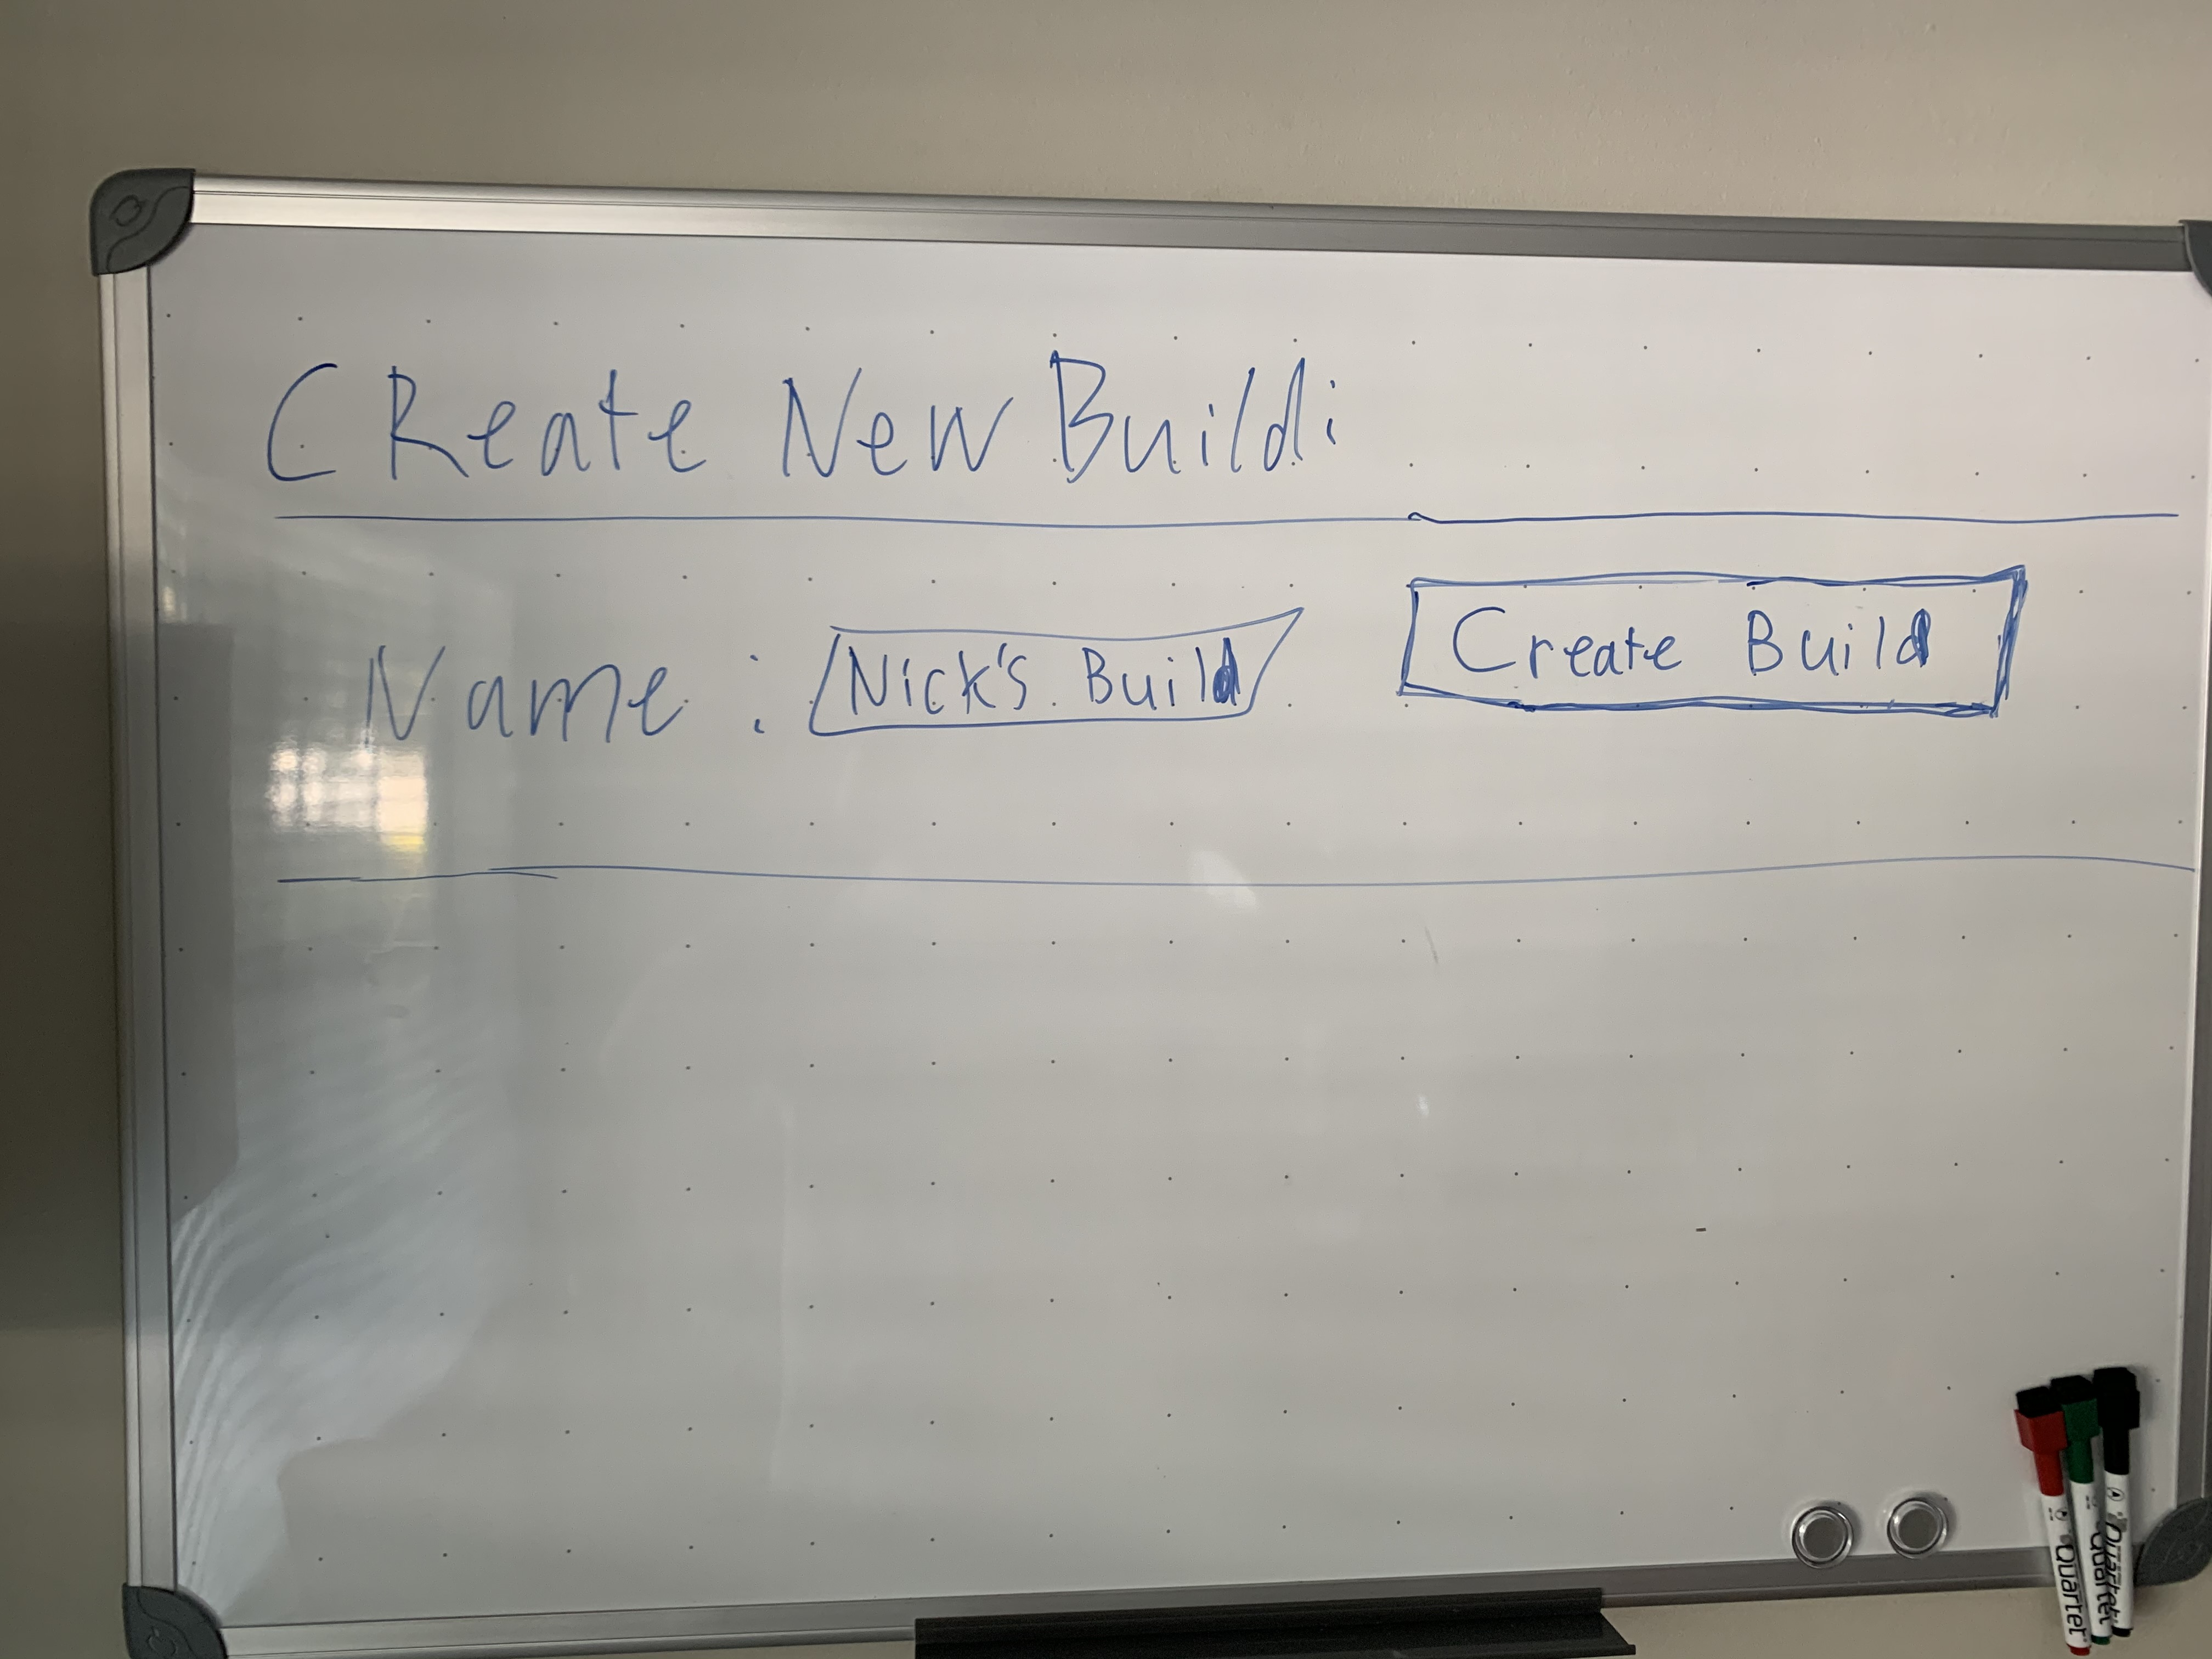 CReate New Build:
Name : Nick's Build Create Build
Quartet Quartet Quartet